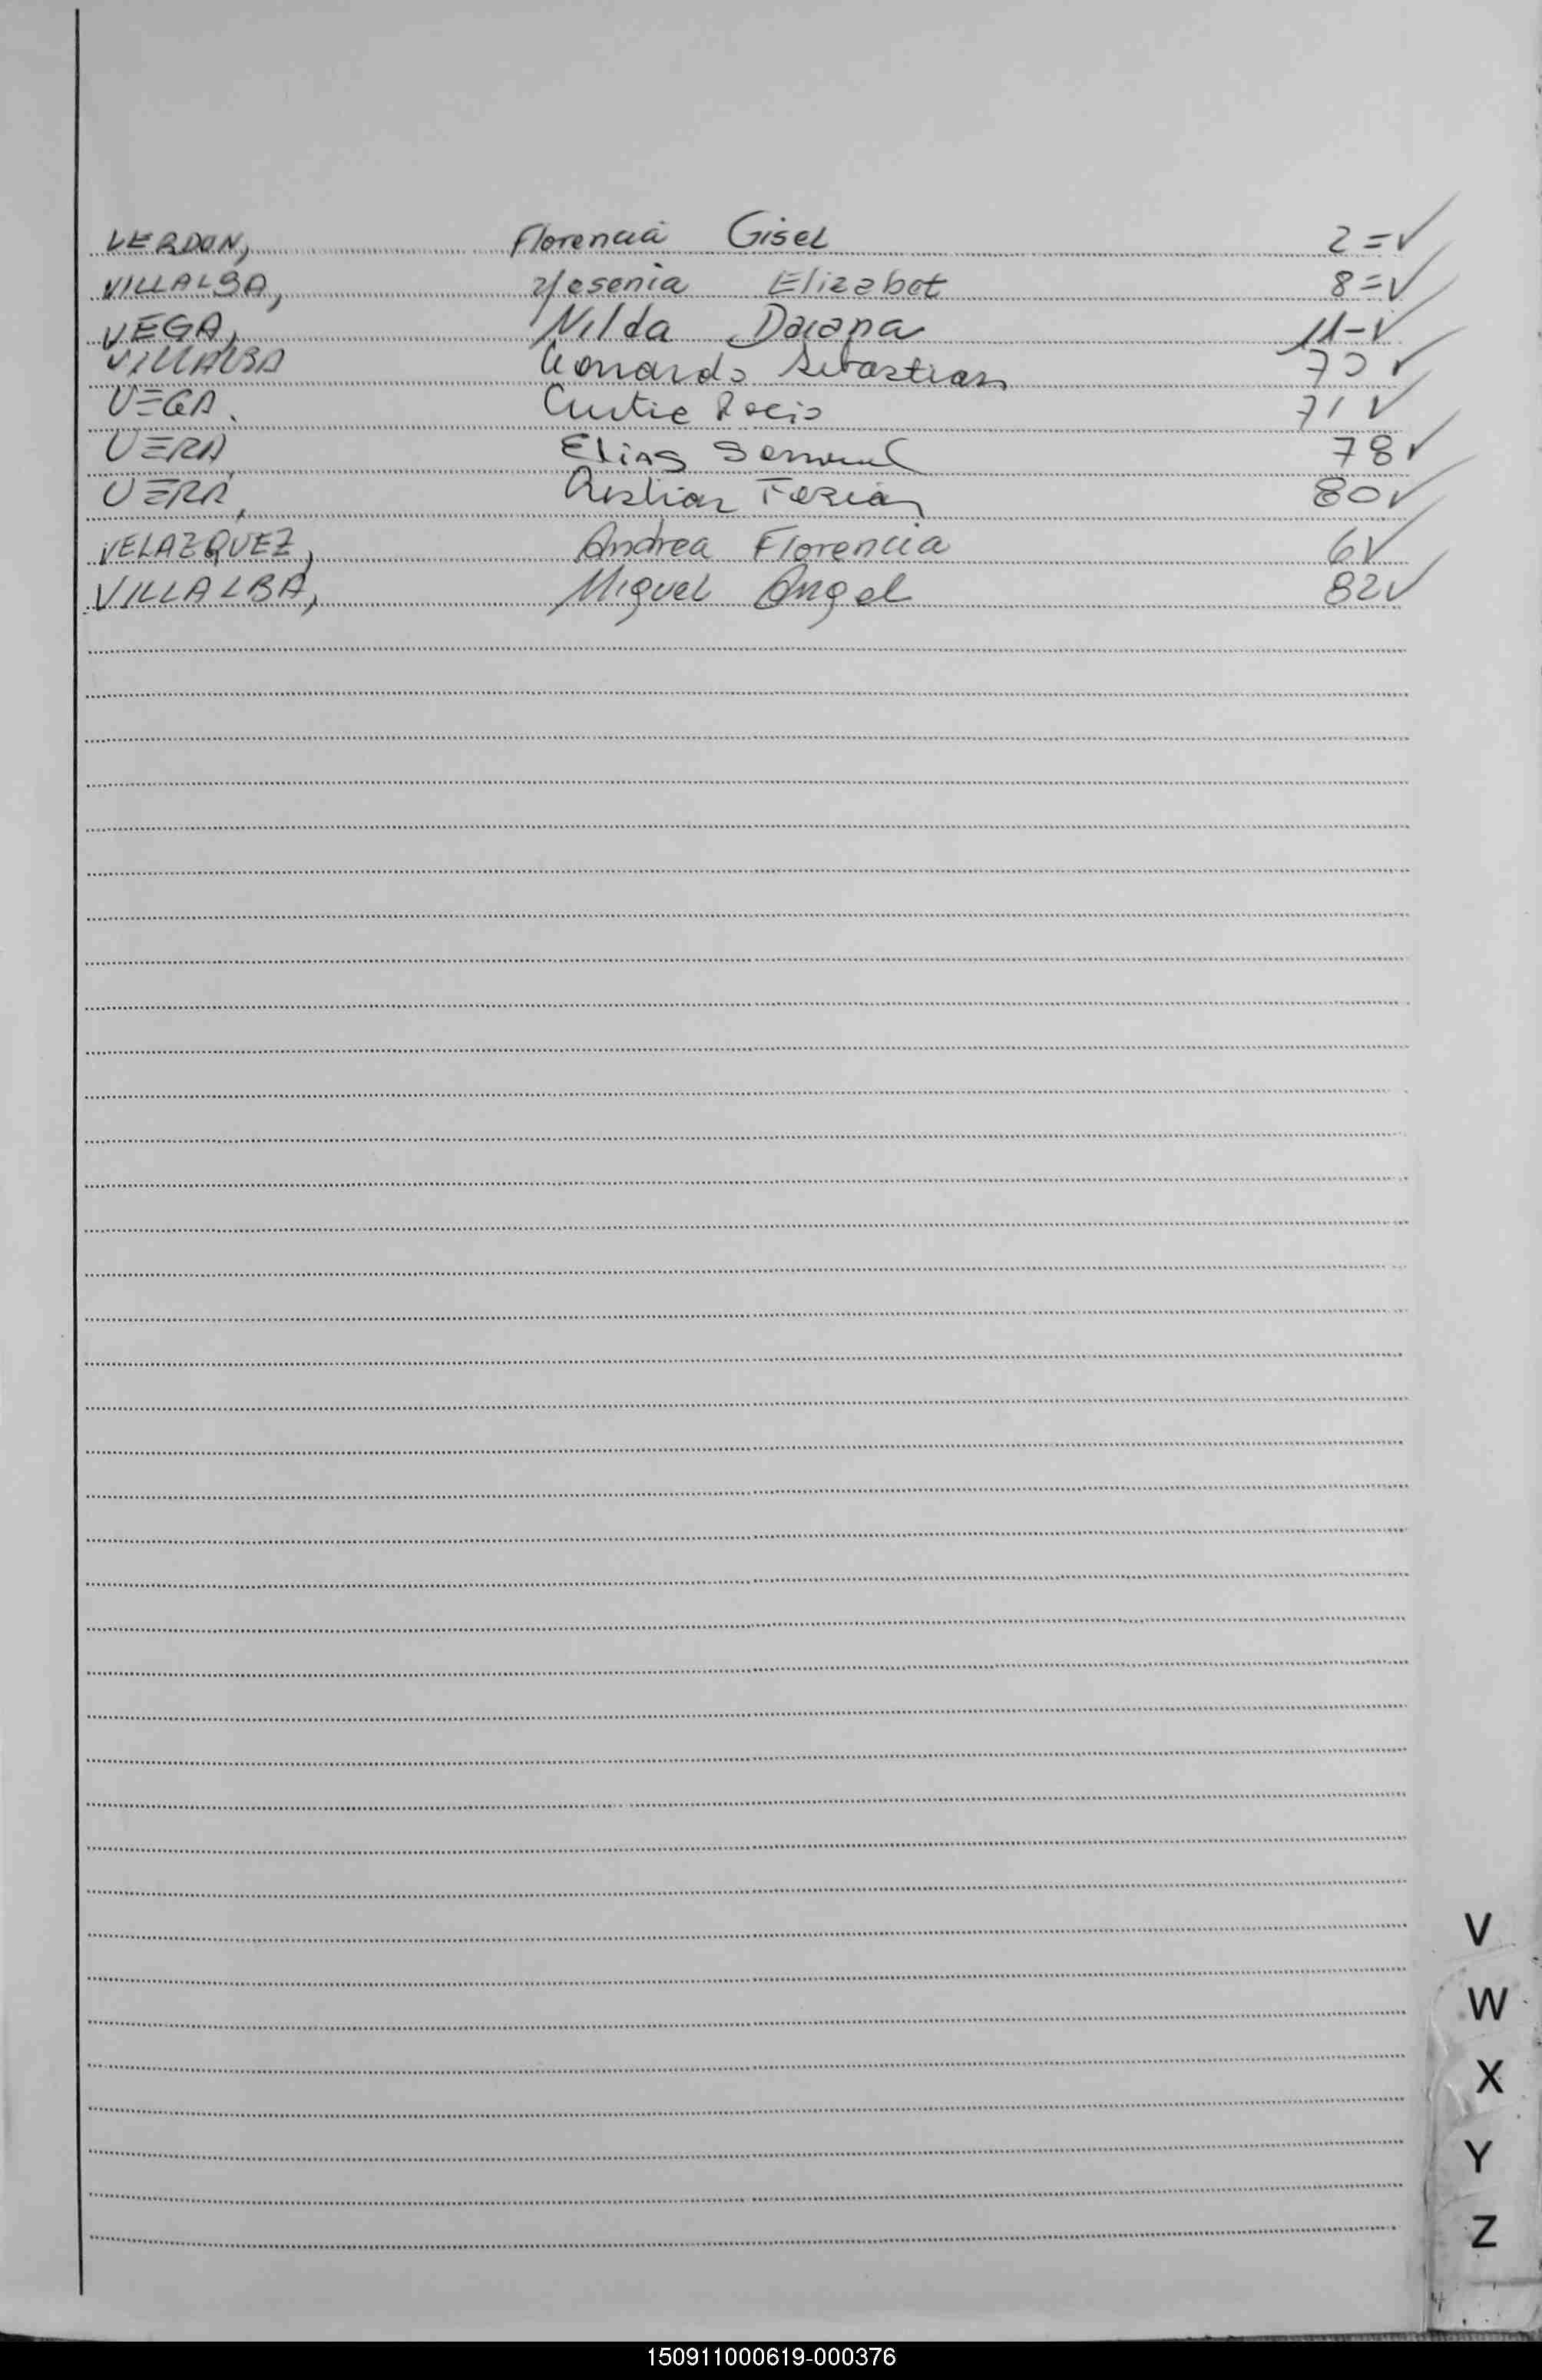 VERDUN, Florencia Gisel 2=✓
VILLALBA, Yesenia Elizabet 8=✓
VEGA, Nilda Daiana 11-✓
VILLALBA Leonardo Sebastian 70 ✓
VEGA. Rocio 71 ✓
VERA, Elias Samuel 78✓
VERA, Cristian Fabián 80✓
VELAZQUEZ, Andrea Florencia 6✓
VILLALBA, Miguel Angel 82✓
V
W
X
Y
Z
150911000619-000376